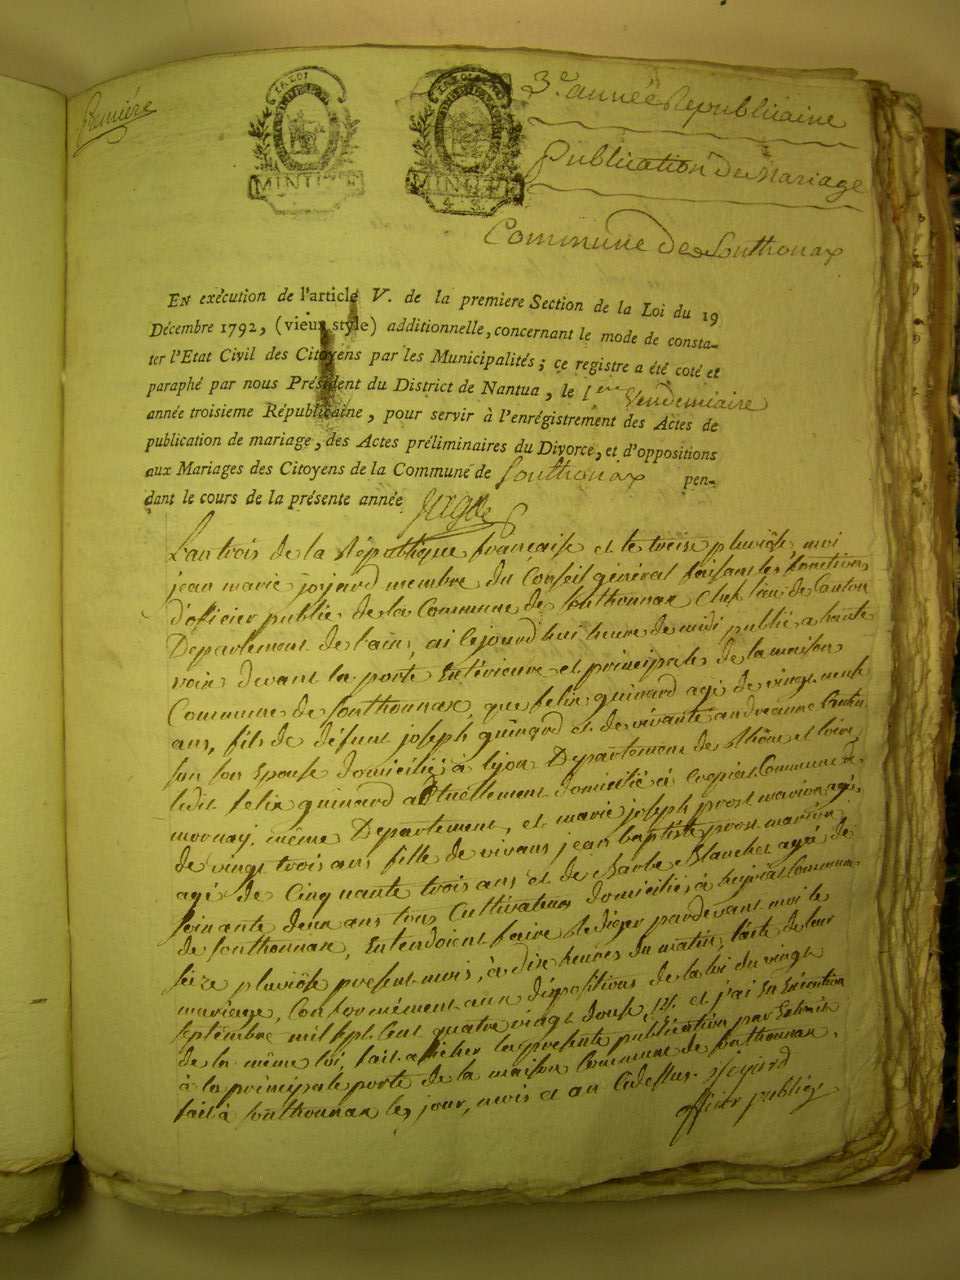 Première
LA LOI
LA LOI
3.e année Republicaine
publication De Mariage
Commune de Sonthonax
EN exécution de l'article V. de la premiere Section de la Loi du 19
Décembre 1792, (vieux style) additionnelle, concernant le mode de consta-
ter l'Etat Civil des Citoyens par les Municipalités; ce registre a été coté et
paraphé par nous Président du District de Nantua, le 1er Vendemiaire
année troisieme Républicaine, pour servir à l'enrégistrement des Actes de
publication de mariage, des Actes préliminaires du Divorce, et d'oppositions
aux Mariages des Citoyens de la Commune de Sonthonax pen-
dant le cours de la présente année
L'an trois de la République française et le treise pluviôse, moi
jean marie jojard membre du Conseil général faisant les fonctions
d'officier public de la Commune de Sonthonnax Chef lieu de Canton
Departement de l'ain, ai lejourd'hui heure de midi publié a haute
voix devant la porte Extérieure et principale de la maison
Commune de Sonthonnax, que felix guinard agé de vingt neuf
ans, fils de défunt joseph guinard et de vivante andréanne
son Epouse domiciliés à lyon Departement de Rhône et loire,
ledit felix guinard actuellement domicilié à Commune de
mornay, même Departement, et marie joseph prost marion agée
de vingt trois ans fille de vivans jean baptiste prost marion
agé de Cinquante trois ans et de Barbe Blanchet agée de
soixante deux ans tous Cultivateurs domiciliés à heyriat Commune
de Sonthonnax, Entendoient faire Rediger pardevant moi le
seize pluviôse present mois, à dix heures du matin, l'acte de leur
mariage, Conformément aux dispositions de la loi du vingt
septembre mil sept Cent quatre vingt douse, et j'ai En Exécution
de la même loi, fait afficher la présente publication par Extrait
à la principale porte de la maison Commune de Sonthonnax.
fait à Sonthonnax les jour, mois et an Cidessus. jojard
officier public